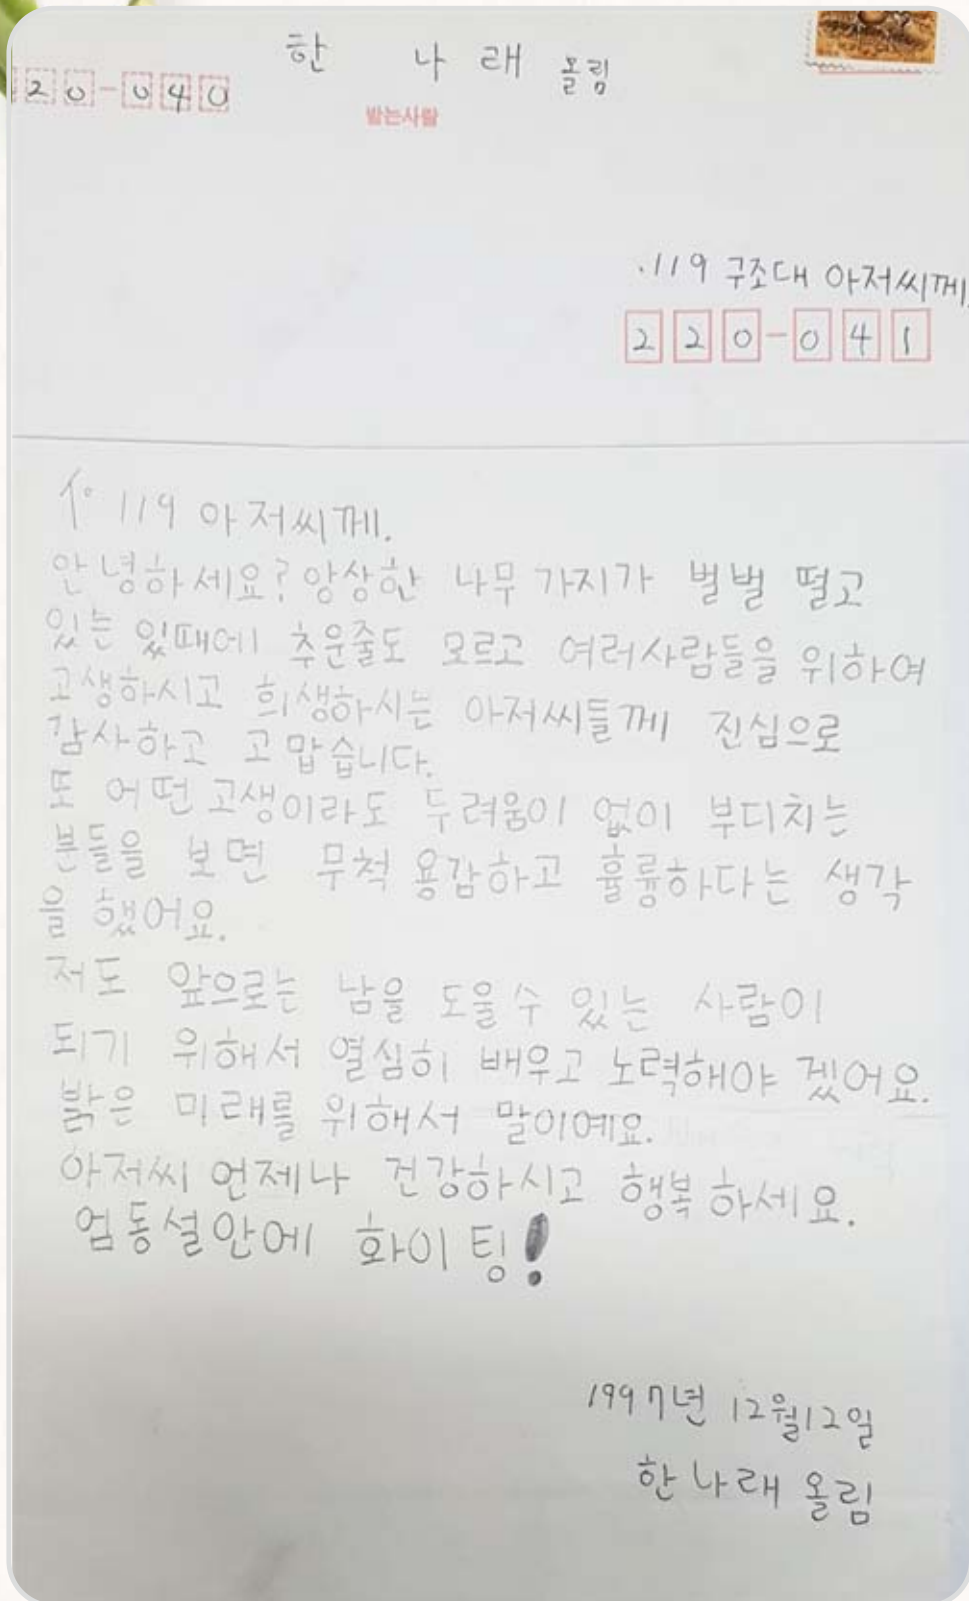 한 나 래 올림
20-040
받는사람
.119 구조대 아저씨께
220-041
119 아저씨께.
안녕하세요? 앙상한 나무 가지가 벌벌 떨고
있는 있때에 추운줄도 모르고 여러사람들을 위하여
고생하시고 희생하시는 아저씨들께 진심으로
감사하고 고맙습니다.
또 어떤 고생이라도 두려움이 없이 부디치는
분들을 보면 무척 용감하고 휼륭하다는 생각
을 했어요.
저도 앞으로는 남을 도울수 있는 사람이
되기 위해서 열심히 배우고 노력해야 겠어요.
밝은 미래를 위해서 말이예요.
아저씨 언제나 건강하시고 행복하세요.
엄동설안에 화이팅!
1997년 12월12일
한나래 올림